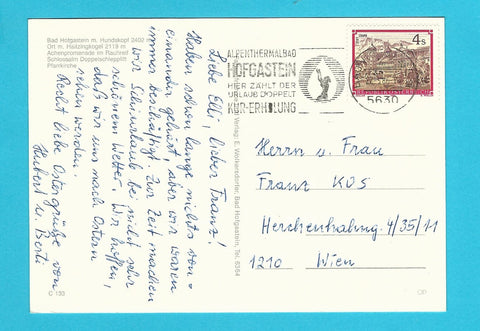 Bad Hofgastein m. Hundskopf 2402 m
Ort m. Haitzingkogel 2118 m
Achenpromenade im Rauhreif
Schlossalm Doppelschlepplift
Pfarrkirche
Liebe Elli, lieber Franz!
Haben schon lange nichts von-
einander gehört, aber wir waren
immer beschäftigt. Zur Zeit machen
wir Schiurlaub bei nicht sehr
schönem Wetter. Wir hoffen,
daß wir uns nach Ostern
sehen werden.
Recht liebe Ostergrüße von
Hubert u. Berti
C 133
Verlag: E. Wolkersdorfer, Bad Hofgastein, Tel. 6364
ALPENTHERMALBAD
HOFGASTEIN
HIER ZÄHLT DER
URLAUB DOPPELT
KUR-ERHOLUNG
5630
4 S
REPUBLIK ÖSTERREICH
Herrn u. Frau
Franz KOS
4/35/11
1210 Wien